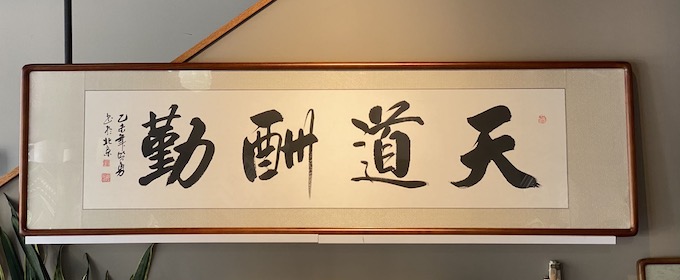 天道酬勤
乙未年
书于北京